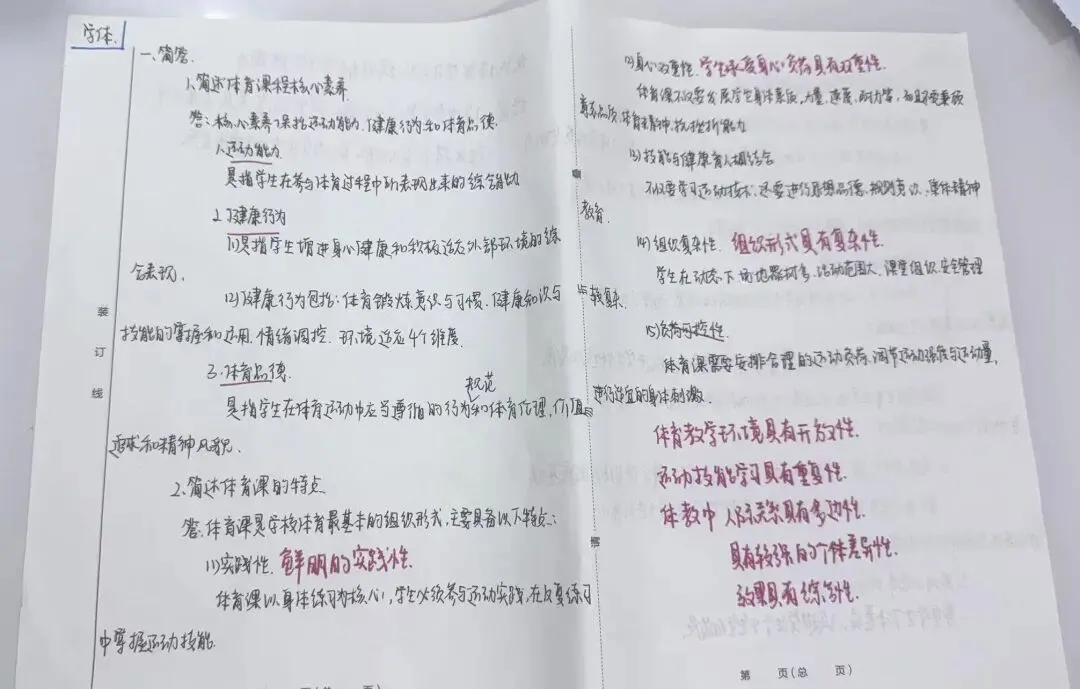 字体.
一、简答.
1.简述体育课程核心素养.
答:核心素养包括运动能力、健康行为和体育品德.
1.运动能力
是指学生在参与体育过程中所表现出来的综合能力
2.健康行为
(1)是指学生增进身心健康和积极适应外部环境的综
合表现.
(2)健康行为包括:体育锻炼意识与习惯、健康知识与
技能的掌握和运用、情绪调控、环境适应4个维度.
3.体育品德.
是指学生在体育运动中应当遵循的行为规范和体育伦理、价值
追求和精神风貌.
2.简述体育课的特点.
答:体育课是学校体育最基本的组织形式,主要具备以下特点:
(1)实践性. 鲜明的实践性.
体育课以身体练习为核心,学生必须参与运动实践,在反复练习
中掌握运动技能.
装
订
线
(2)身心双重性. 学生承受身心负荷具有双重性.
体育课不仅要发展学生身体素质,力量、速度、耐力等,
体育精神,抗挫折能力
(3)技能与健康育人相结合
不仅要学习运动技术,还要进行思想品德、规则意识、集体精神
教育.
(4)组织复杂性. 组织形式具有复杂性.
学生在动态下,场地器材多、活动范围大、课堂组织、安全管理
较复杂.
(5)负荷可控性.
体育课需要安排合理的运动负荷,调节运动强度与运动量,
进行适宜的身体刺激
体育教学环境具有开放性.
运动技能学习具有重复性.
体教中人际关系具有多边性.
具有较强的个体差异性.
效果具有综合性.
第 页(总 页)
页(总 页)